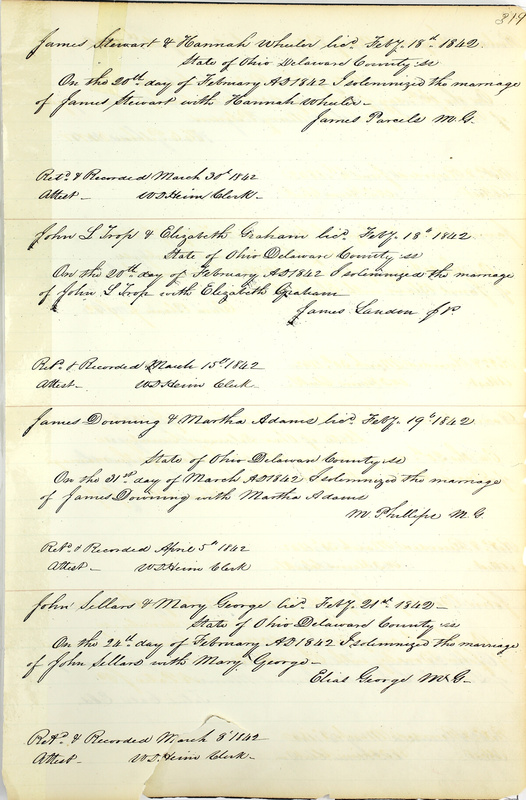 319
James Stewart & Hannah Wheeler licd. Feby. 18th. 1842.
State of Ohio Delaware County ss
On the 20th. day of February AD 1842 I solemnized the marriage
of James Stewart with Hannah Wheeler –
James Parcels M.G.
Retd. & Recorded March 30th 1842
Attest – W D Heim Clerk –
John L Trop & Elizabeth Graham licd. Feby. 18th 1842
State of Ohio Delaware County ss
On the 20th. day of February AD 1842 I solemnized the marriage
of John L Trop with Elizabeth Graham
James Landon J.P.
Retd. & Recorded March 15th 1842
Attest – W D Heim Clerk –
James Downing & Martha Adams licd. Feby. 19th 1842
State of Ohio Delaware County ss
On the 31st. day of March AD 1842 I solemnized the marriage
of James Downing with Martha Adams
M Phillips M.G.
Retd. & Recorded April 5th 1842
Attest – W D Heim Clerk
John Sellars & Mary George licd. Feby. 21st. 1842 –
State of Ohio Delaware County ss
On the 24th. day of February AD 1842 I solemnized the marriage
of John Sellars with Mary George –
Elias George M.G –
Retd. & Recorded March 3d 1842
Attest – W D Heim Clerk –